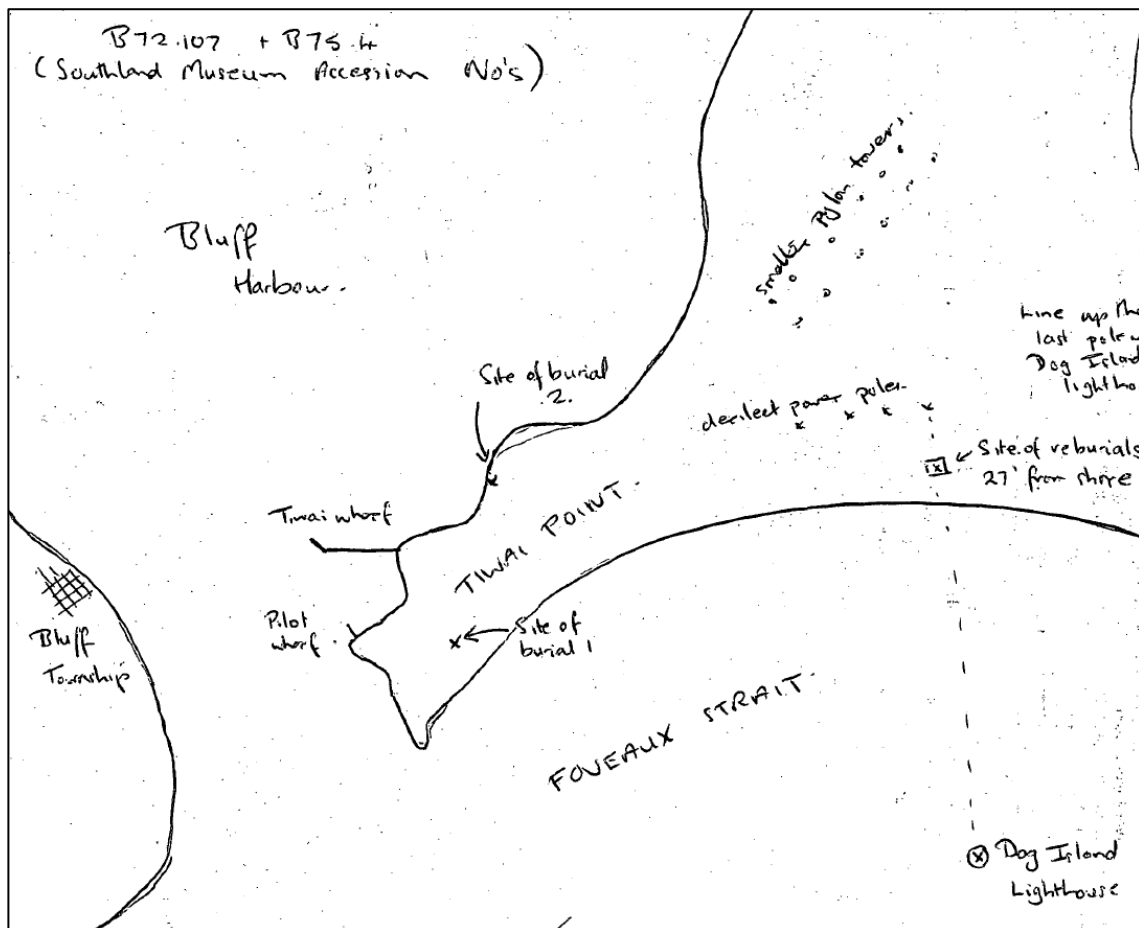 B72.107 + B75.4
(Southland Museum Accession No's)
Bluff
Harbour.
smaller Pylon towers.
Line up the
last pole
Dog Island
Site of burial
2.
derilect power poles.
Site of reburials
27' from shore
Tiwai wharf
TIWAI POINT.
Pilot
wharf.
Site of
burial 1
Bluff
Township
FOVEAUX STRAIT.
Dog Island
Lighthouse